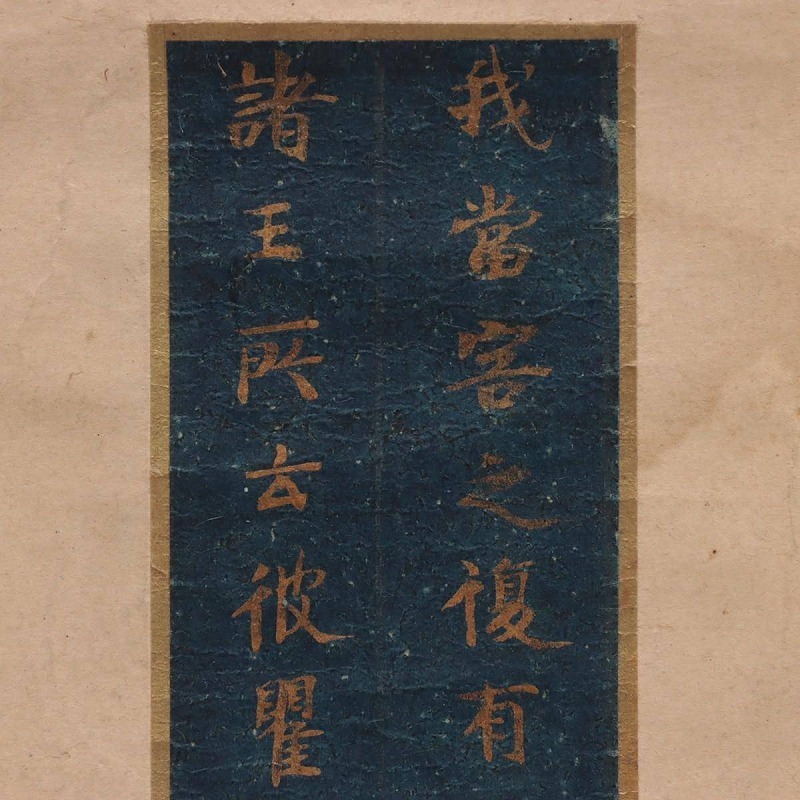 我當害之復有
諸王所云彼瞿